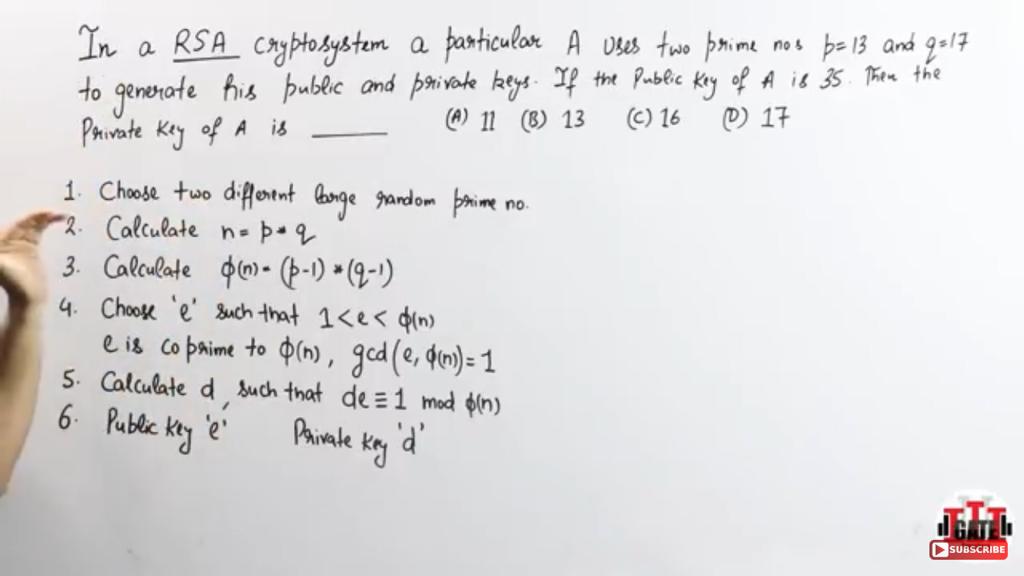 In a RSA cryptosystem a particular A uses two prime nos p=13 and q=17
to generate his public and private keys. If the Public Key of A is 35. Then the
Private Key of A is ______ (A) 11 (B) 13 (C) 16 (D) 17
1. Choose two different large random prime no.
2. Calculate n = p * q
3. Calculate ϕ(n) = (p-1) * (q-1)
4. Choose 'e' such that 1 < e < ϕ(n)
e is co prime to ϕ(n), gcd(e, ϕ(n)) = 1
5. Calculate d, such that de ≡ 1 mod ϕ(n)
6. Public key 'e' Private key 'd'
GATE
SUBSCRIBE